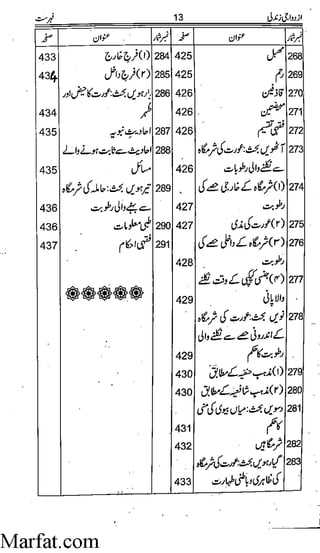 ازدواجی زندگی 13 فہرست
نمبر شمار عنوان صفحہ نمبر شمار عنوان صفحہ
268 مہبل 425
269 رحم 425
270 قاذفین 426
271 مبیضتین 426
272 فقہی تقسیم 426
273 آٹھویں بحث: عورت کی شرمگاہ
سے نکلنے والی رطوبات 426
274 (۱) شرمگاہ کے خارجی حصے کی
رطوبت 427
275 (۲) عورت کی مذی 427
276 (۳) شرمگاہ کے داخلی حصے کی
رطوبت 428
277 (۴) جنسی کپکپی کے وقت نکلنے
والا پانی 429
278 نویں بحث: عورت کی شرمگاہ
کے اندرونی حصے سے نکلنے والی
رطوبت کا حکم 429
279 (۱) مذہب حنفیہ کے مطابق 430
280 (۲) مذہب شافعیہ کے مطابق 430
281 دسویں بحث: میاں بیوی کی منی
کا حکم 431
282 شرمگاہیں 432
283 گیارہویں بحث: عورت کی شرمگاہ
کی ظاہری و باطنی طہارت 433
284 (۱) فرج خارج 433
285 (۲) فرج داخل 434
286 بارہویں بحث: عورت کا حیض اور
طہر 434
287 احادیث نبویہ 435
288 احادیث سے ثابت ہونے والے
مسائل 435
289 تیرہویں بحث: حاملہ کی شرمگاہ
سے بہنے والی رطوبت 436
290 طبی معلومات 436
291 فقہی احکام 437
Marfat.com